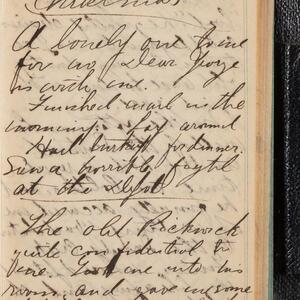 Christmas
A lonely one to me
for no Dear George
is with me.
Finished mail in the
morning. Lay around
Had turkey for dinner.
Saw a horrible fight
at the Depot.
The old Pickwick
quite confidential to
me into his
room, and gave me some